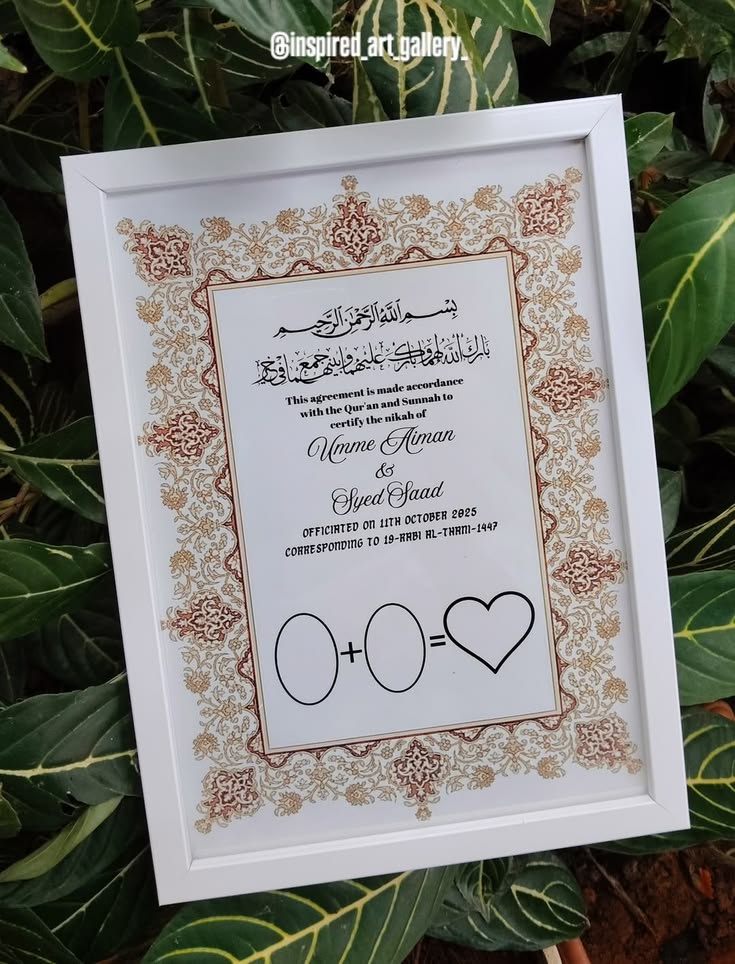 @inspired_art_gallery_
بِسْمِ اللَّهِ الرَّحْمَنِ الرَّحِيمِ
بَارَكَ اللَّهُ لَهُمَا وَبَارَكَ عَلَيْهِمَا وَجَمَعَ بَيْنَهُمَا فِي خَيْر
This agreement is made accordance
with the Qur'an and Sunnah to
certify the nikah of
Umme Aiman
&
Syed Saad
OFFICIATED ON 11TH OCTOBER 2025
CORRESPONDING TO 19-RABI AL-THANI-1447
+ =